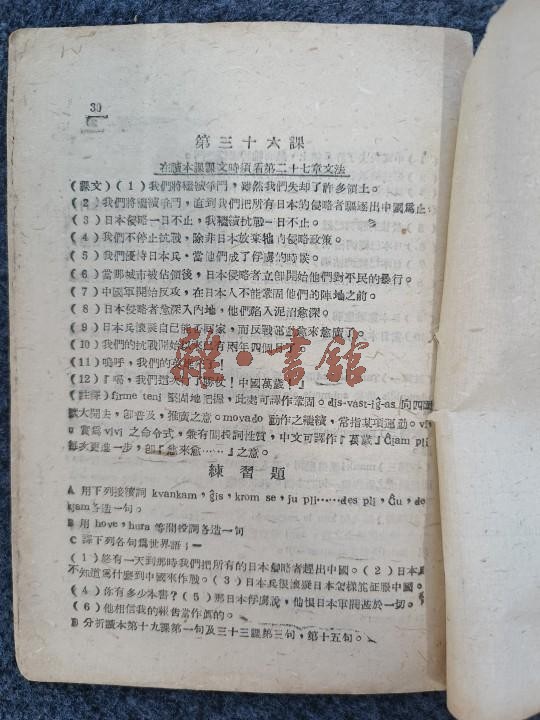 30
第三十六課
在讀本課課文時須看第二十七章文法
(課文)(1)我們將繼續爭鬥，雖然我們失却了許多領土。
(2)我們將繼續爭鬥，直到我們把所有日本的侵略者驅逐出中國爲止
(3)日本侵略一日不止，我繼續抗戰一日不止。
(4)我們不停止抗戰，除非日本放棄牠的侵略政策。
(5)我們優待日本兵，當他們成了俘虜的時候。
(6)當那城市被佔領後，日本侵略者立卽開始他們對平民的暴行。
(7)中國軍開始反攻，在日本人不能鞏固他們的陣地之前。
(8)日本侵略者愈深入內地，他們陷入泥沼愈深。
(9)日本兵懷疑自己能否回家，而反戰運動愈來愈廣了。
(10)我們的抗戰開始以來已有兩年四個月了。
(11)嗚呼，我們的英雄
(12)『噶，我們這天打了勝仗！中國萬歲！』
(註釋)firme teni 緊固地把握，此處可譯作鞏固。dis-vast-iĝ-as 向四面
擴大開去，卽普及，推廣之意。movado 動作之繼續，常指某項運動。vi
u 實爲 vivi 之命令式，兼有間投詞性質，中文可譯作『萬歲』Ĝjam pli
每亥更進一步，卽『愈來愈……』之意。
練習題
A 用下列接續詞 kvankam, ĝis, krom se, ju pli……des pli, Ĝu, de
kjam 各造一句。
B 用 hove, hura 等間投詞各造一句
C 譯下列各句爲世界語；—
(1)終有一天到那時我們把所有的日本侵略者趕出中國。(2)日本兵
不知道爲什麼到中國來作戰。(3)日本兵很懷疑日本怎樣能征服中國。
(4)你有多少本書？(5)那日本俘虜說，他恨日本軍閥甚於一切。
(6)他相信我的報告當作真的。
D 分析讀本第十九課第一句及三十三課第三句，第十五句。
雜·書館